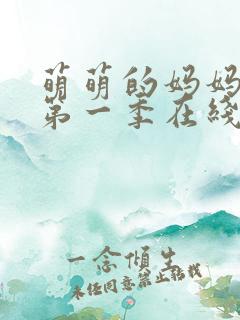 萌萌的妈妈
第一季在线
一念倾生
未经同意禁止转载